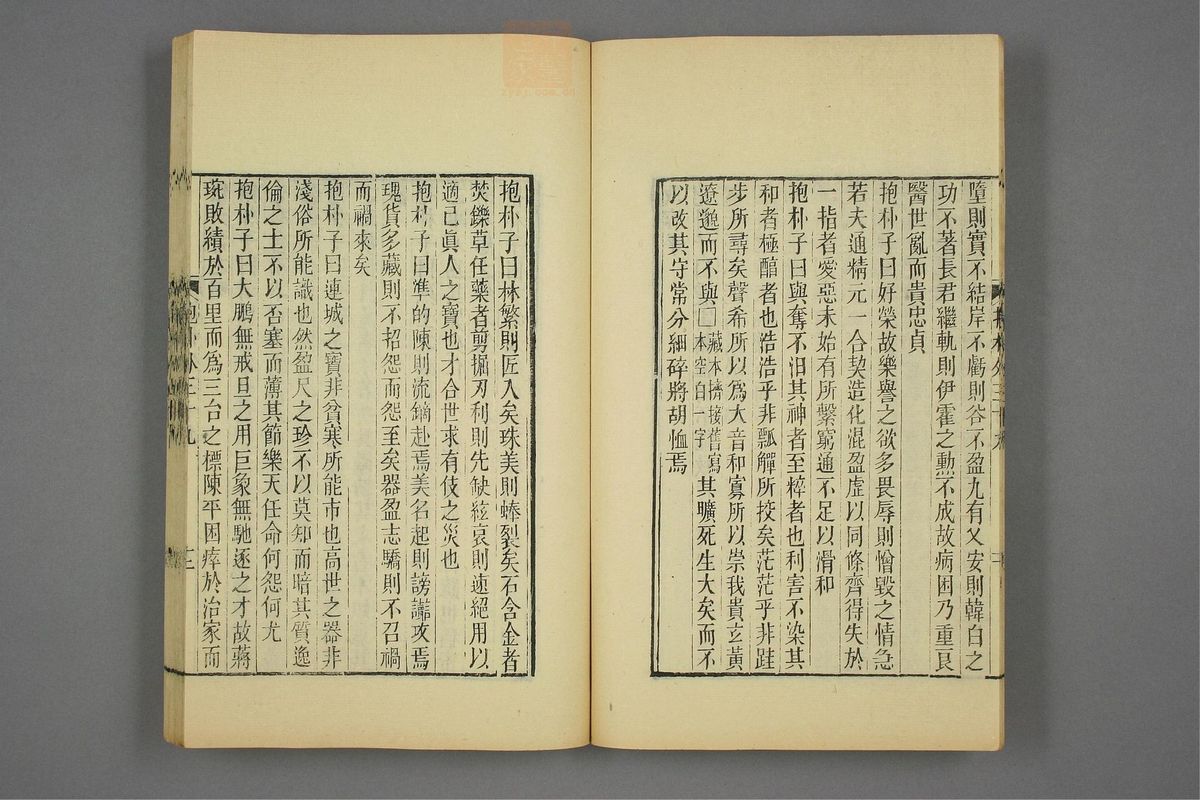 墮則實不結岸不虧則谷不盈九有乂安則韓白之
功不著長君繼軌則伊霍之勲不成故病困乃重良
醫世亂而貴忠貞
抱朴子曰好榮故樂譽之欲多畏辱則憎毀之情急
若夫通精元一合契造化混盈虛以同條齊得失於
一指者愛惡未始有所繫窮通不足以滑和
抱朴子曰與奪不汨其神者至粹者也利害不染其
和者極醇者也浩浩乎非瓢觶所挍矣茫茫乎非跬
步所尋矣聲希所以爲大音和寡所以崇我貴玄黃
遼邈而不與□藏本擠接舊寫本空白一字其曠死生大矣而不
以改其守常分細碎將胡恤焉
抱朴子曰林繁則匠入矣珠美則蜯裂矣石含金者
焚鑠草任藥者剪掘刃利則先缺絃哀則速絕用以
適己眞人之寶也才合世求有伎之災也
抱朴子曰準的陳則流鏑赴焉美名起則謗讟攻焉
瑰貨多藏則不招怨而怨至矣器盈志驕則不召禍
而禍來矣
抱朴子曰連城之寶非貧寒所能市也高世之器非
淺俗所能識也然盈尺之珍不以莫知而暗其質逸
倫之士不以否塞而薄其節樂天任命何怨何尤
抱朴子曰大鵬無戒旦之用巨象無馳逐之才故蔣
琬敗績於百里而爲三台之標陳平困瘁於治家而
抱朴外三十九
十二